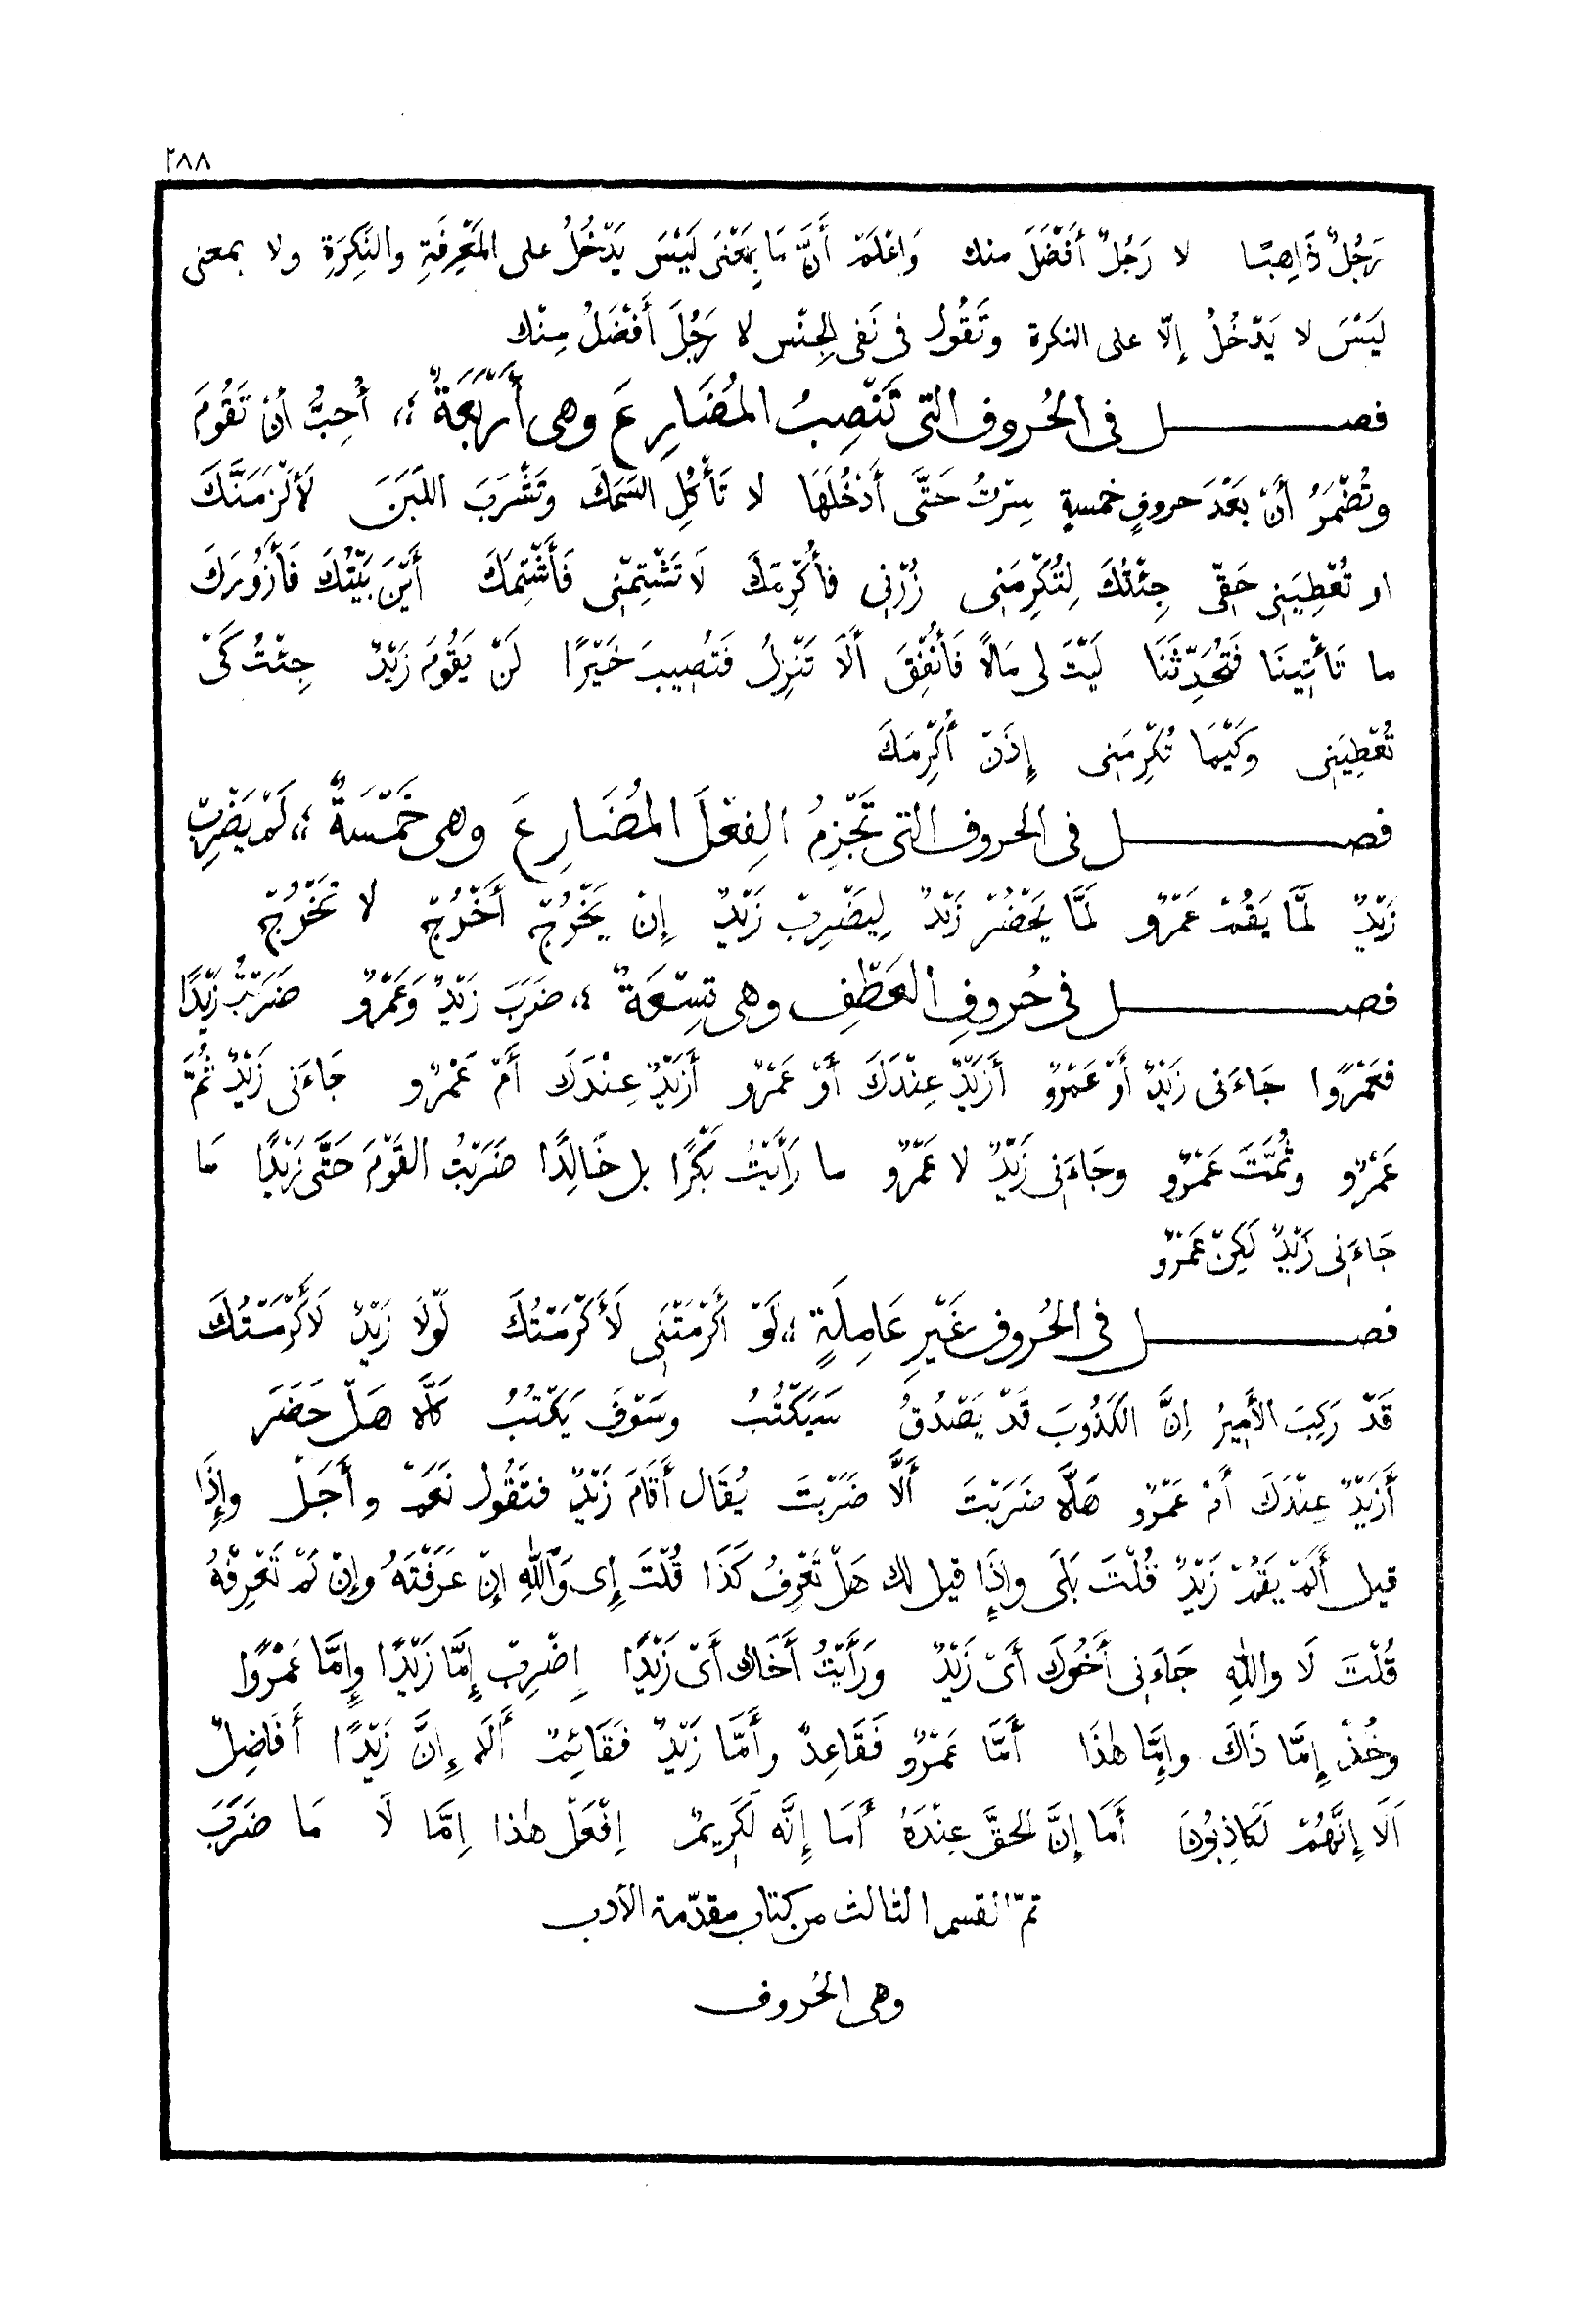 ٢٨٨
رَجُلٌ ذَاهِبًا لا رَجُلٌ أَفْضَلَ منك وَاعْلَمْ أَنَّ مَا بِمَعْنَى لَيْسَ يَدْخُلُ على المَعْرِفَةِ والنَّكِرَةِ ولا بمعنى
لَيْسَ لا يَدْخُلُ إلّا على النكرة وتَقُول فى نَفى الجِنْس لا رَجُلَ أَفْضَلُ مِنْك
فصل فى الحُروف التى تَنْصِبُ المُضَارِعَ وهى أَرْبَعَةٌ ، أُحِبُّ أنْ تَقُومَ
وتُضْمَرُ أنْ بَعْدَ حروفٍ خمسةٍ سِرْتُ حَتَّى أَدْخُلَهَا لا تَأْكُلِ السَّمَكَ وتَشْرَبَ اللَّبَنَ لَأَلْزَمَنَّكَ
او تُعْطِيَنِى حَقِّى جِئْتُكَ لِتُكْرِمَنِى زُرْنِى فأُكْرِمَكَ لَا تَشْتِمْنِى فَأَشْتِمَكَ أَيْنَ بَيْتُكَ فَأَزُورَكَ
ما تَأْتِينَا فَتُحَدِّثَنَا لَيْتَ لى مَالًا فَأُنْفِقَ أَلَا تَنْزِلُ فَتُصِيبَ خَيْرًا لَنْ يَقُومَ زَيْدٌ جِئْتُ كَىْ
تُعْطِيَنِى وكَيْمَا تُكْرِمَنِى إِذَنْ أُكْرِمَكَ
فصل فى الحروف التى تَجْزِمُ الفِعْلَ المُضَارِعَ وهى خَمْسَةٌ ، لَمْ يَضْرِبْ
زَيْدٌ لَمَّا يَقُمْ عَمْرٌو لَمَّا يَحْضُرْ زَيْدٌ لِيَضْرِبْ زَيْدٌ إِنْ يَخْرُجْ أَخْرُجْ لا تَخْرُجْ
فصل فى حُروفِ العَطْفِ وهى تِسْعَةٌ ، ضَرَبَ زَيْدٌ وَعَمْرٌو ضَرَبْتُ زَيْدًا
فعَمْرًوا جَاءَنى زَيْدٌ أَوْ عَمْرٌو أَزَيْدٌ عِنْدَكَ أَوْ عَمْرٌو أَزَيْدٌ عِنْدَكَ أَمْ عَمْرٌو جَاءَنى زَيْدٌ ثُمَّ
عَمْرٌو وثُمَّتَ عَمْرٌو وجَاءَنِى زَيْدٌ لا عَمْرٌو ما رَأَيْتُ بَكْرًا بل خَالِدًا ضَرَبْتُ القَوْمَ حَتَّى زَيْدًا مَا
جَاءَنِى زَيْدٌ لَكِنْ عَمْرٌو
فصل فى الحُروف غَيْرِ عَامِلَةٍ ، لَوْ أَكْرَمْتَنِى لَأَكْرَمْتُكَ لَوْلَا زَيْدٌ لَأَكْرَمْتُكَ
قَدْ رَكِبَ الأَمِيرُ اِنَّ الكَذُوبَ قَدْ يَصْدُقُ سَيَكْتُبُ وسَوْفَ يَكْتُبُ كَلَّا هَلْ حَضَرَ
أَزَيْدٌ عِنْدَكَ أَمْ عَمْرٌو هَلَّا ضَرَبْتَ أَلَّا ضَرَبْتَ يُقَال أَقَامَ زَيْدٌ فتَقُول نَعَمْ وأَجَلْ وإِذَا
قيل أَلَمْ يَقُمْ زَيْدٌ قُلْتَ بَلَى وإِذَا قيل لك هَلْ تَعْرِفُ كَذَا قُلْتَ إِى وَٱللّٰهِ اِنْ عَرَفْتَهُ وإِنْ لَمْ تَعْرِفْهُ
قُلْتَ لَا واللّٰهِ جَاءَنِى أَخُوكَ أَىْ زَيْدٌ ورَأَيْتُ أَخَاك أَىْ زَيْدًا اِضْرِبْ إِمَّا زَيْدًا وإِمَّا عَمْرًوا
وخُذْ إِمَّا ذَاكَ وإِمَّا هٰذَا أَمَّا عَمْرٌو فَقَاعِدٌ وأَمَّا زَيْدٌ فَقَائِمٌ أَلَا إِنَّ زَيْدًا أَفَاضِلٌ
اَلَا إِنَّهُمْ لَكَاذِبُونَ أَمَا إِنَّ الحقَّ عِنْدَهُ أَمَا إِنَّه لَكَرِيمٌ اِفْعَلْ هٰذا اِمَّا لَا مَا ضَرَبَ
تمّ القسم الثالث من كتاب مقدّمة الأدب
وهى الحُروف